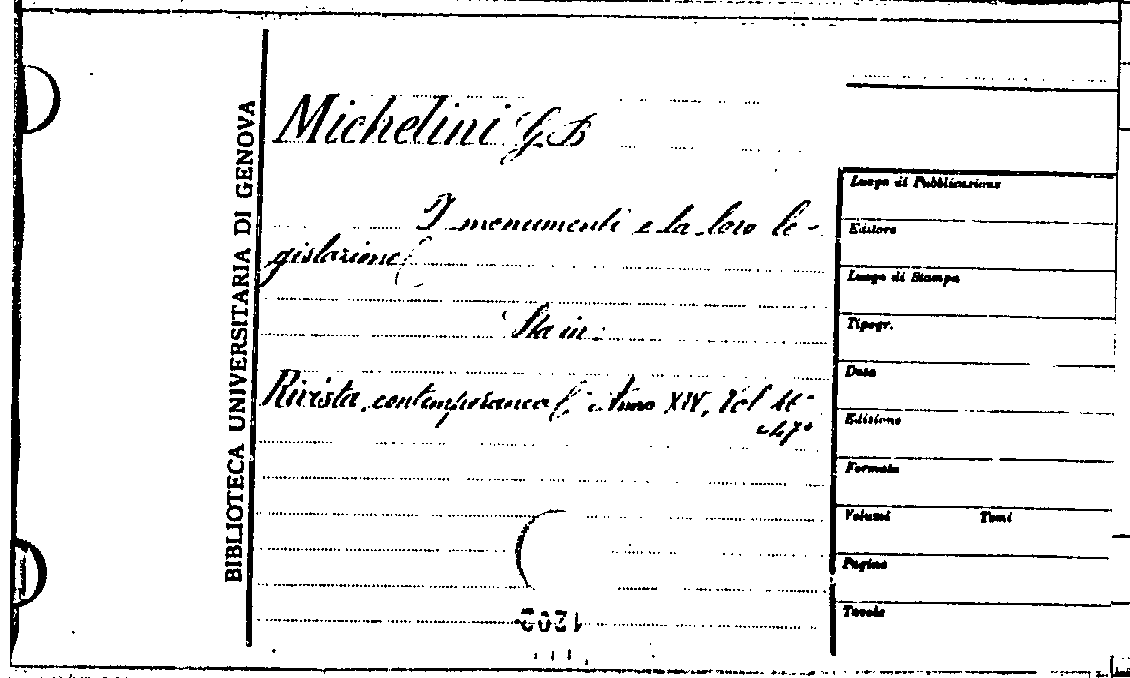 BIBLIOTECA UNIVERSITARIA DI GENOVA
Michelini G.B
I monumenti e la loro le-
gislazione
Sta in:
Rivista contemporanea Anno XIV, Vol
e 47°
Luogo di Pubblicazione
Editore
Luogo di Stampa
Tipogr.
Data
Edizione
Formato
Volumi Tomi
Pagine
Tavole